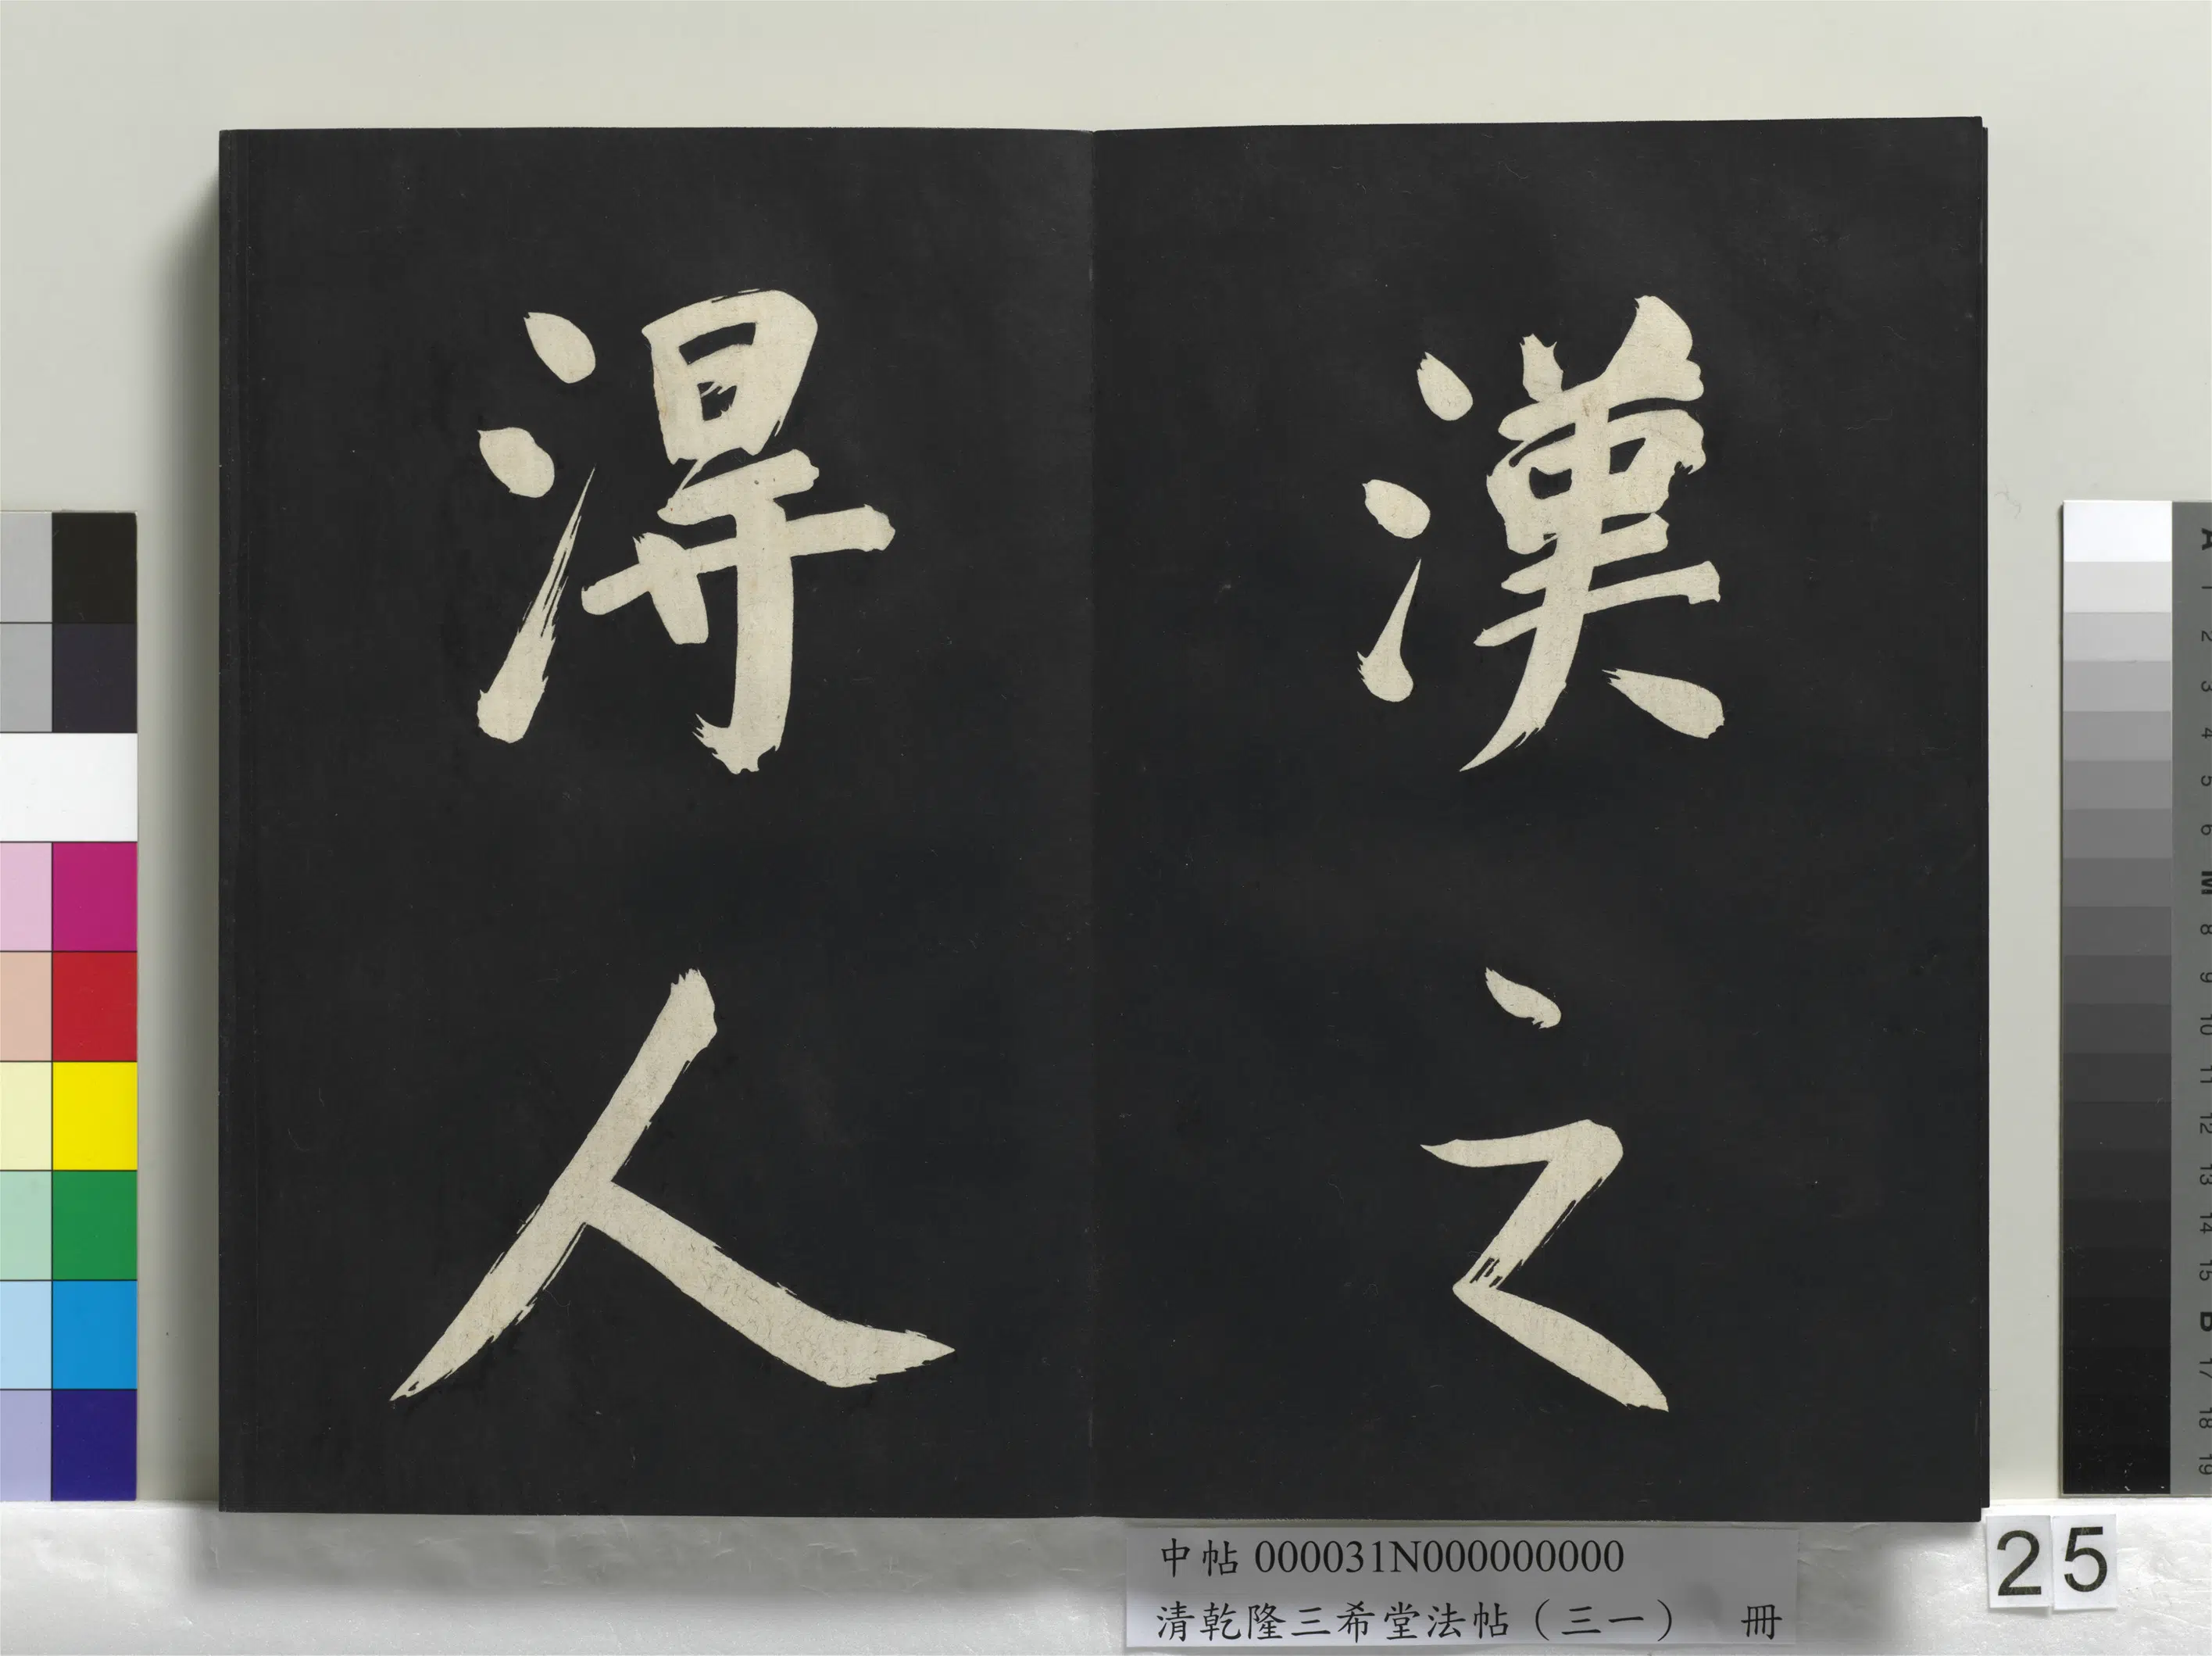 漢之
淂人
中帖000031N000000000
清乾隆三希堂法帖（三一） 冊
25
A 1 2 3 4 5 6 M 8 9 10 11 12 13 14 15 B 17 18 19